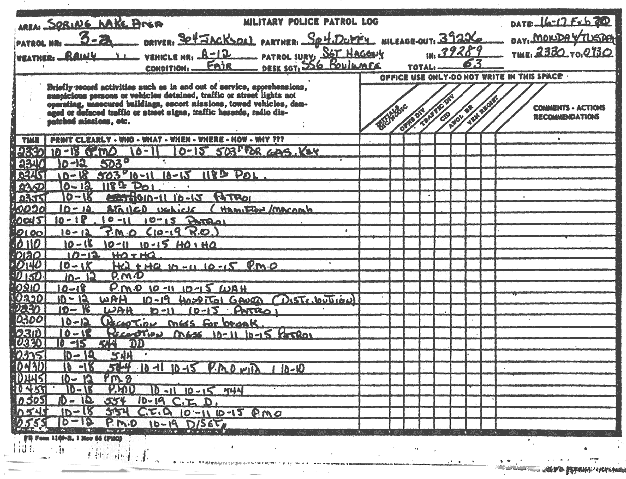 MILITARY POLICE PATROL LOG
AREA: SPRING LAKE AREA DATE: 16-17 Feb 70
PATROL NR. 3-2 DRIVER: Sp4 JACKSON PARTNER: Sp4 DUFFY MILEAGE-OUT: 39226 DAY: MONDAY/TUESDAY
WEATHER: RAINY VEHICLE NR: A-12 PATROL SUPV: SGT IN: 39289 TIME: 2330 TO: 0730
CONDITION: FAIR DESK SGT: SSG BOULWARE TOTAL: 63
OFFICE USE ONLY-DO NOT WRITE IN THIS SPACE
Briefly record activities such as in and out of service, apprehensions,
suspicious persons or vehicles detained, traffic or street lights not
operating, unsecured buildings, escort missions, towed vehicles, dam-
aged or defaced traffic or street signs, traffic hazards, radio dis-
patched missions, etc.
OPNS DIV TRAFFIC DIV CID
COMMENTS - ACTIONS
RECOMMENDATIONS
TIME PRINT CLEARLY - WHO - WHAT - WHEN - WHERE - HOW - WHY ???
2330 10-18 PMO 10-11 10-15 503rd FOR GAS KEY
2340 10-12 503rd
2345 10-18 503rd 10-11 10-15 118th POL
2350 10-12 118th POL
2355 10-18 10-11 10-15 PATROL
0020 10-12 STALLED VEHICLE (HAMILTON/MACOMB
0045 10-18 10-11 10-15 PATROL
0100 10-12 P.M.O (10-19 R.O.)
0110 10-18 10-11 10-15 HQ+HQ
0120 10-12 HQ+HQ
0140 10-18 HQ+HQ 10-11 10-15 P.M.O
0150 10-12 P.M.O
0210 10-18 P.M.O 10-11 10-15 WAH
0220 10-12 WAH 10-19 HOSPITAL GUARD (DISTRIBUTION)
0230 10-18 WAH 10-11 10-15 PATROL
0300 10-12 RECEPTION MESS FOR BREAK
0310 10-18 RECEPTION MESS 10-11 10-15 PATROL
0330 10-15 544 DD
0335 10-12 544
0430 10-18 544 10-11 10-15 P.M.O WITH 1 10-10
0445 10-12 PMO
0455 10-18 PMO 10-11 10-15 544
0505 10-12 554 10-19 C.I.D.
0545 10-18 554 C.I.D 10-11 10-15 P.M.O
0555 10-12 P.M.O 10-19 D/SGT.